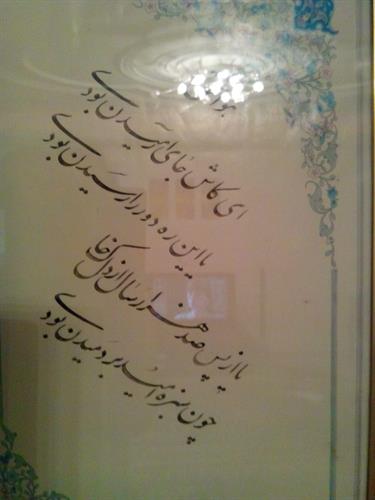 ای کاش جای آرمیدن بودی
یا این ره دور را رسیدن بودی
یا از پس صد هزار سال از دل خاک
چون سبزه امید بر دمیدن بودی